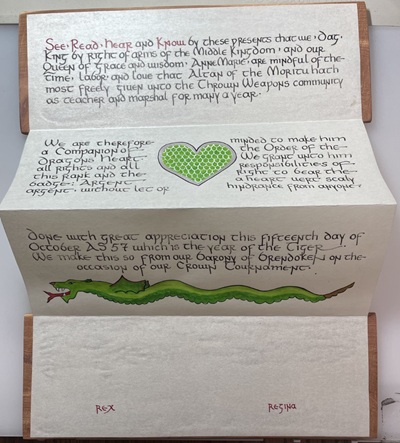 See · Read · Hear and Know by these presents that we · Dag ·
King by right of arms of the Middle Kingdom · and our
Queen of Grace and wisdom · AnneMarie · are mindful of the
time, labor · and love that Altan of the Morituhach
most freely given unto the Thrown Weapons community
as teacher and marshal for many a year ·
We are therefore minded to make him
a Companion of the Order of the
Dragons Heart · We grant unto him
all rights and all responsibilities of
this rank and the Right to bear the
badge : Argent a heart vert scaly
argent · without let or hindrance from anyone ·
Done with great appreciation this fifteenth day of
October AS 57 which is the year of the Tiger
We make this so from our Barony of Brendoken on the
occasion of our Crown Tournament ·
Rex Regina